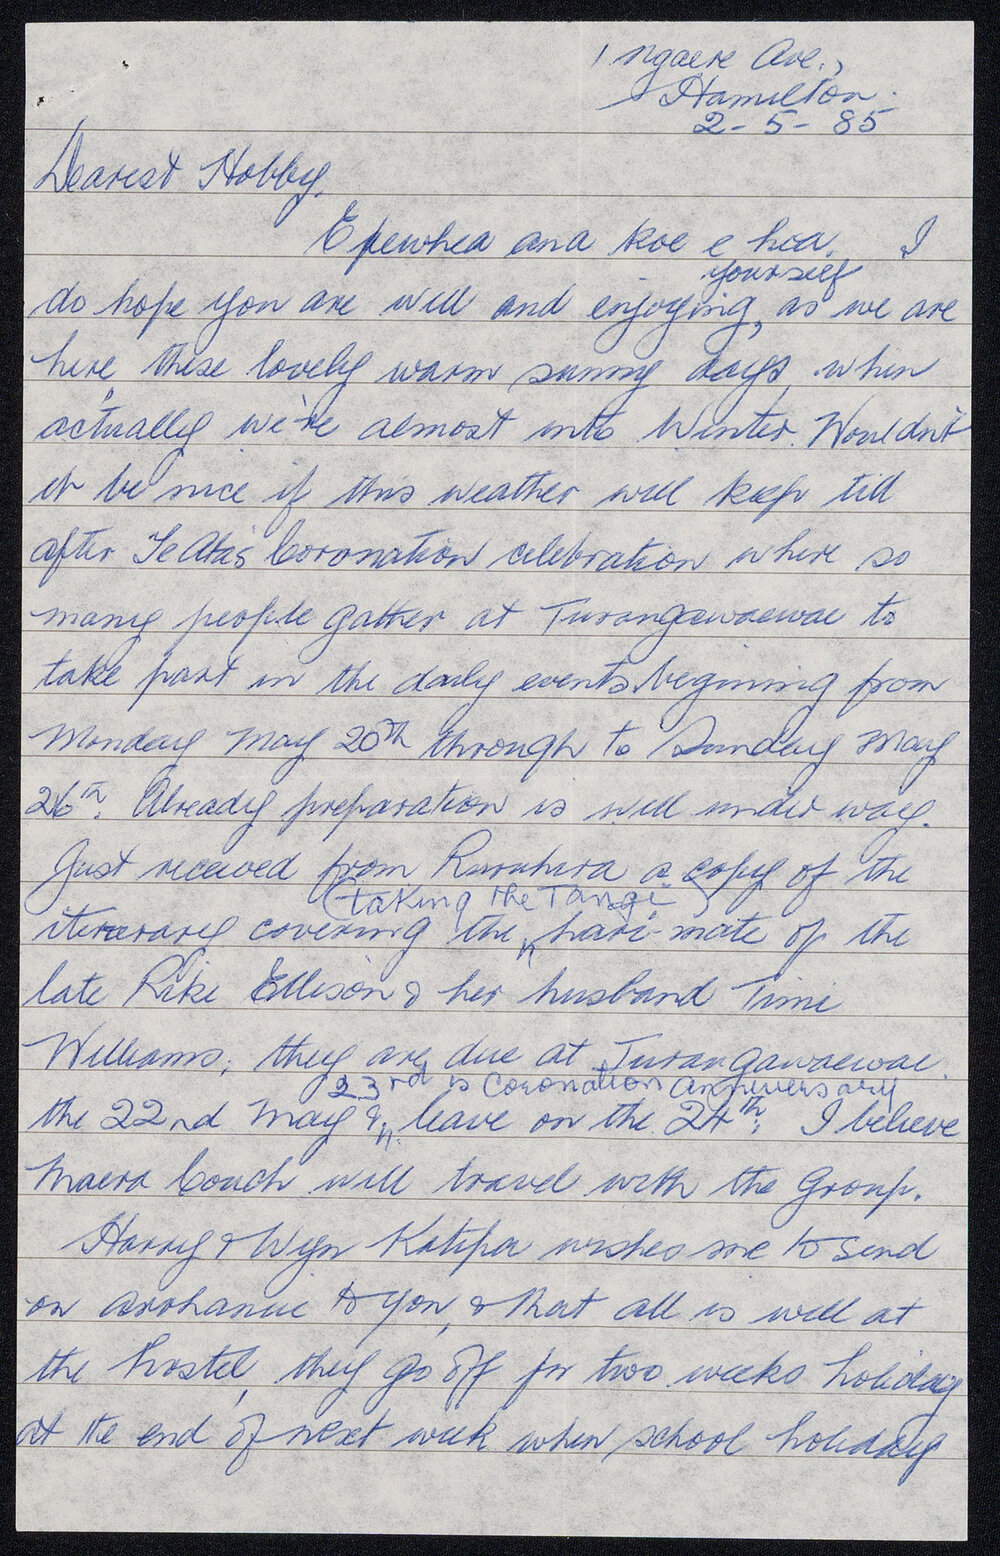 1 Ngaere Ave.,
Hamilton.
2-5-85
Dearest Hobby,
Epewhea ana koe e hoa. I
yourself
do hope you are well and enjoying, as we are
here, these lovely warm sunny days, when
actually we're almost into Winter. Wouldn't
it be nice if this weather will keep till
after Te Ata's Coronation celebration where so
many people gather at Turangawaewae to
take part in the daily events begining from
Monday May 20th through to Sunday May
26th. Already preparation is well under way.
Just received from Ruruhira a copy of the
(taking the Tangi)
iterarary covering the hari-mate of the
late Rike Ellison & her husband Timi
Williams, they are due at Turangawaewae.
23rd is Coronation anniversary
the 22nd May & leave on the 24th. I believe
Maera Couch will travel with the Group.
Harry & Wyn Katipa wishes me to send
on arohanui to you, & that all is well at
the hostel, they go off for two weeks holiday
at the end of next week when school holiday